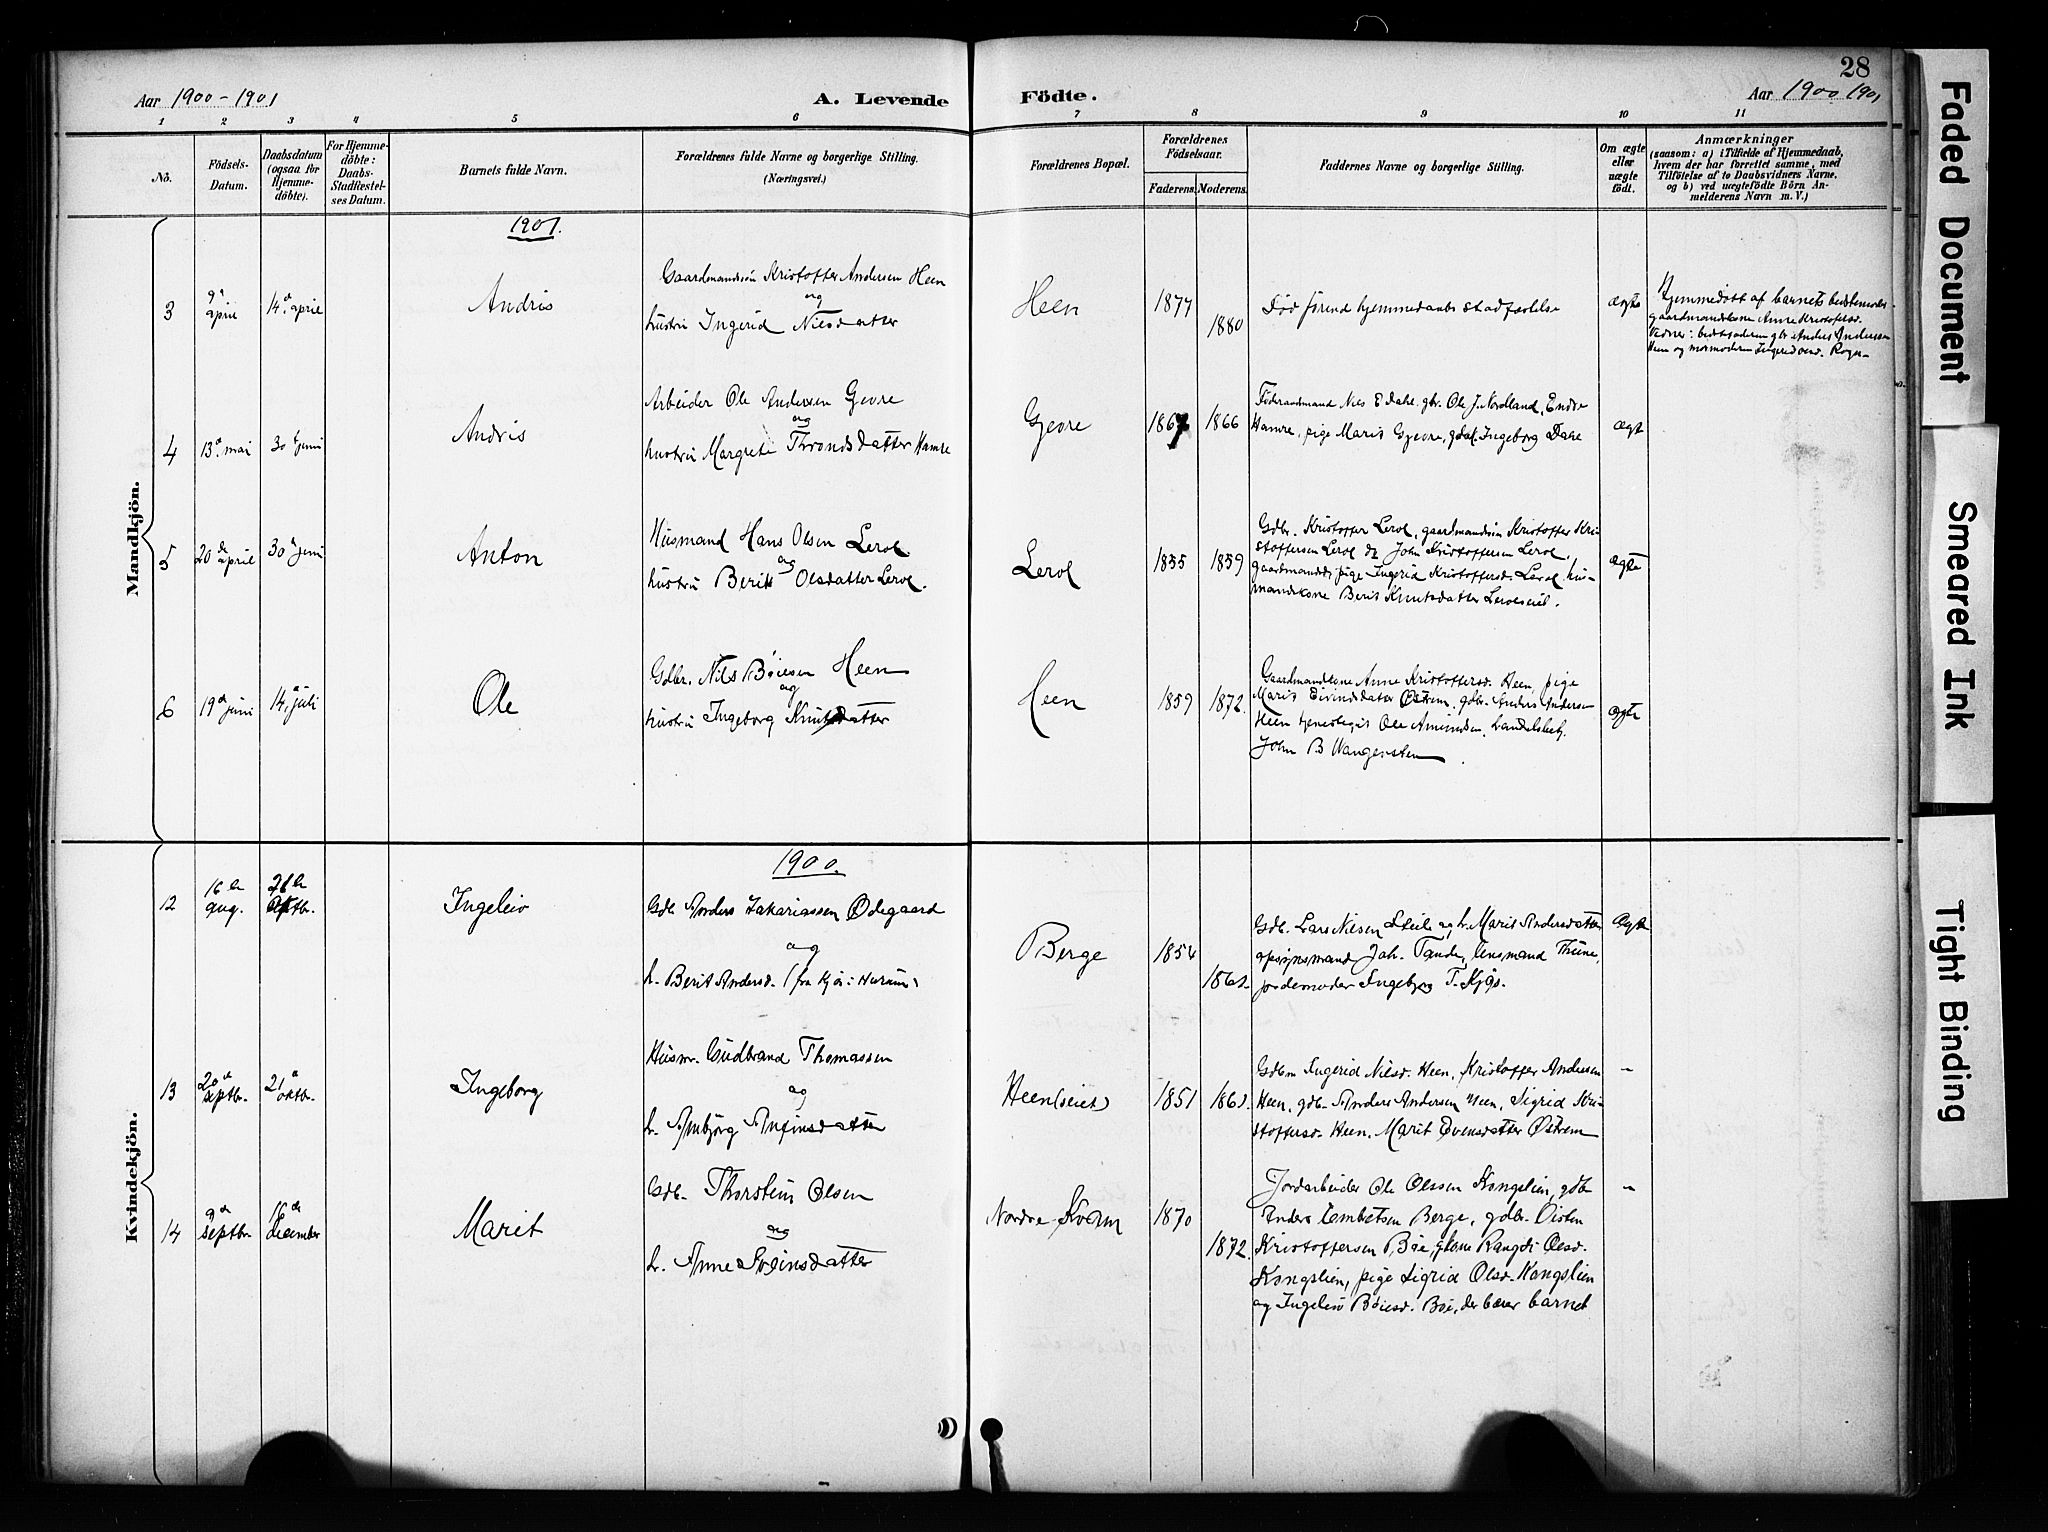 28
Aar 1900-1901
A. Levende Födte.
Aar 1900 1901
1 2 3 4 5 6 7 8 9 10 11
No.
Födsels-
Datum.
Daabsdatum
(ogsaa for
Hjemme-
döbte).
For Hjemme-
döbte:
Daabs-
Stadfæstel-
ses Datum.
Barnets fulde Navn.
Forældrenes fulde Navne og borgerlige Stilling.
(Næringsvei.)
Forældrenes Bopæl.
Forældrenes
Födselsaar.
Faderens. Moderens.
Faddernes Navne og borgerlige Stilling.
Om ægte
eller
uægte
födt.
Anmærkninger
(saasom: a) i Tilfælde af Hjemmedaab,
hvem der har forrettet samme, med
Tilföielse af to Daabsvidners Navne,
og b) ved uægtefödte Börn An-
melderens Navn m. V.)
Mandkjön.
1901.
3
9de april
14de april
Andris
Gaardmandsön Kristoffer Andersen Heen
og
hustru Ingerid Nilsdatter
Heen
1877
1880
Död förend hjemmedaabs stadfæstelse
ægte
Hjemmedöbt af barnets bedstemoder
gaardmandskone Anne Kristoffersd.
Vidner: bedstefaderen gbr Anders Andersen
Heen og mormoderen Ingerid
4
13de mai
30te juni
Andris
Arbeider Ole Andersen Gevre
og
hustru Margrete Throndsdatter Hamre
Gevre
1867
1866
Föderaadmand Nils E Dahl. gbr. Ole J. Nordland, Endre
Hamre, pige Marit Gjevre, Ingeborg Dahl
ægt
5
20de april
30te juni
Anton
Husmand Hans Olsen Lerol
og
hustru Berit Olsdatter Lerol.
Lerol
1855
1859
Gdbr. Kristoffer Lerol, gaardmandsön Kristoffer Kri-
stoffersen Lerol og John Kristoffersen Lerol,
gaardmandspige Ingerid Kristoffersd. Lerol, hus-
mandskone Berit Knutsdatter Leroleiet.
ægte
6
19de juni
14de juli
Ole
Gdbr. Nils Böiesen Heen
og
hustru Ingeborg Knutsdatter
Heen
1859
1872.
Gaardmandkone Anne Kristoffersd. Heen, pige
Marit Eivindsdater Östrem, gdbr. Anders Andersen
Heen tjenestegut Ole Amundsen, handelsbetj.
John B Wangensten.
ægte
Kvindekjön.
1900.
12
16de aug.
Ingeleiv
Gdb Anders Zakariassen Ödegaard
og
h. Berit Andersd. (fra Kjös i Hurum)
Berge
1854
Gdb. Lars Nilsen Steile og h. Marit Andersdatter
opsynsmand Joh. Tande, lensmand Thune,
jordemoder Ingebjörg T. Kjös.
Ægte
13
20de septbr.
21de oktbr.
Ingeborg
Husm. Gudbrand Thomassen
og
h. Ambjörg Anfinsdatter
Heen (eiet)
1851
Gdbm Ingerid Nilsd. Heen, Kristoffer Andersen
Heen, gdb. Anders Andersen Heen, Sigrid Kri-
stoffersd. Heen, Marit Evensdatter Östrem
–
14
9de septbr.
16de december
Marit
Gdb. Thorstein Olsen
og
h. Anne Sveinsdatter
Nordre Kvam
1870
1872.
Jordarbeider Ole Olssen Kongslien, gdb
Anders Embretsen Berge, gdbr. Oisten
Kristoffersen Böe, gkone Rangdi Olsd.
Kongslien, pige Sigrid Olsd. Kongslien
og Ingeleiv Böiesd. Böe, der bærer barnet
–
Faded Document
Smeared Ink
Tight Binding